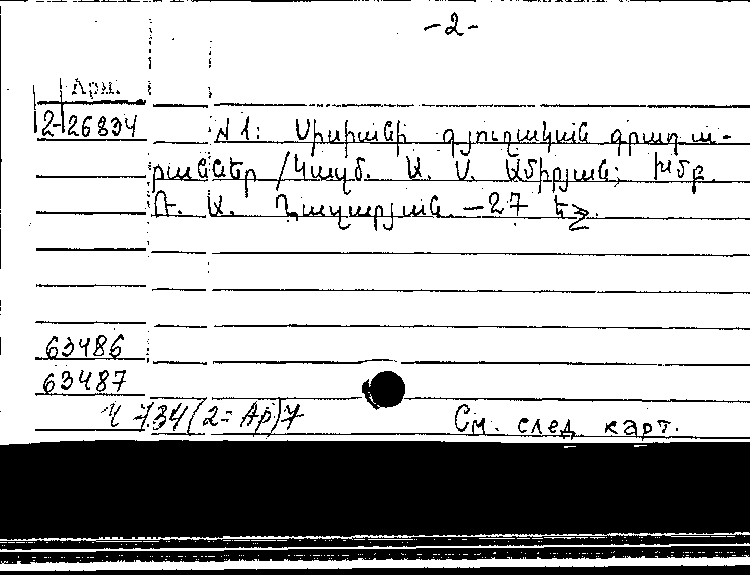 -2-
Арм.
2-26834
N 1: Սիսիանի գյուղական գրադա-
րաններ /Կազմ. Ա. Ս. Ամիրյան; Խմբ.
Ռ. Ա. Ղազարյան. -27 եջ.
63486
63487
Ч 734(2=Ар)7
См. след карт.